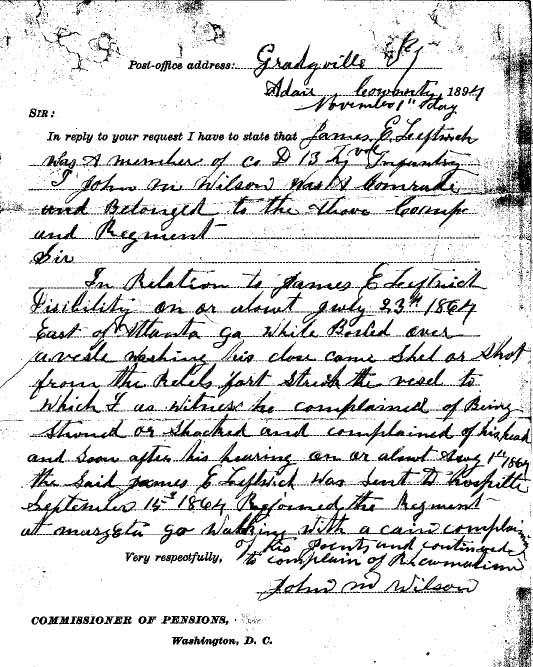 Post-office address: Gradyville Ky
Adair County, 1894
November 1st day
SIR:
In reply to your request I have to state that James E Leftrich
was A member of co D 13 Ky vol Infantry
I John m Wilson was A Comrade
and Belonged to the Above Comp
and Regment
Sir
In Relation to James E Leftrich
Disibility on or about July 23rd 1864
East of Atlanta ga while Boiled over
a vesle washing his close came Shel or Shot
from the Rebels fort Struck the vesel to
which I as witness he complained of Being
Stuned or Shocked and complained of his head
and Soon after his hearing on or about Aug 1st 1864
the Said James E Leftrich was sent to hospitle
September 15 1864 Rejoined the Regment
at ga walking with a cain complaining
of his Joints and continued
Very respectfully, to complain of Rheumatism
John m Wilson
COMMISSIONER OF PENSIONS,
Washington, D. C.